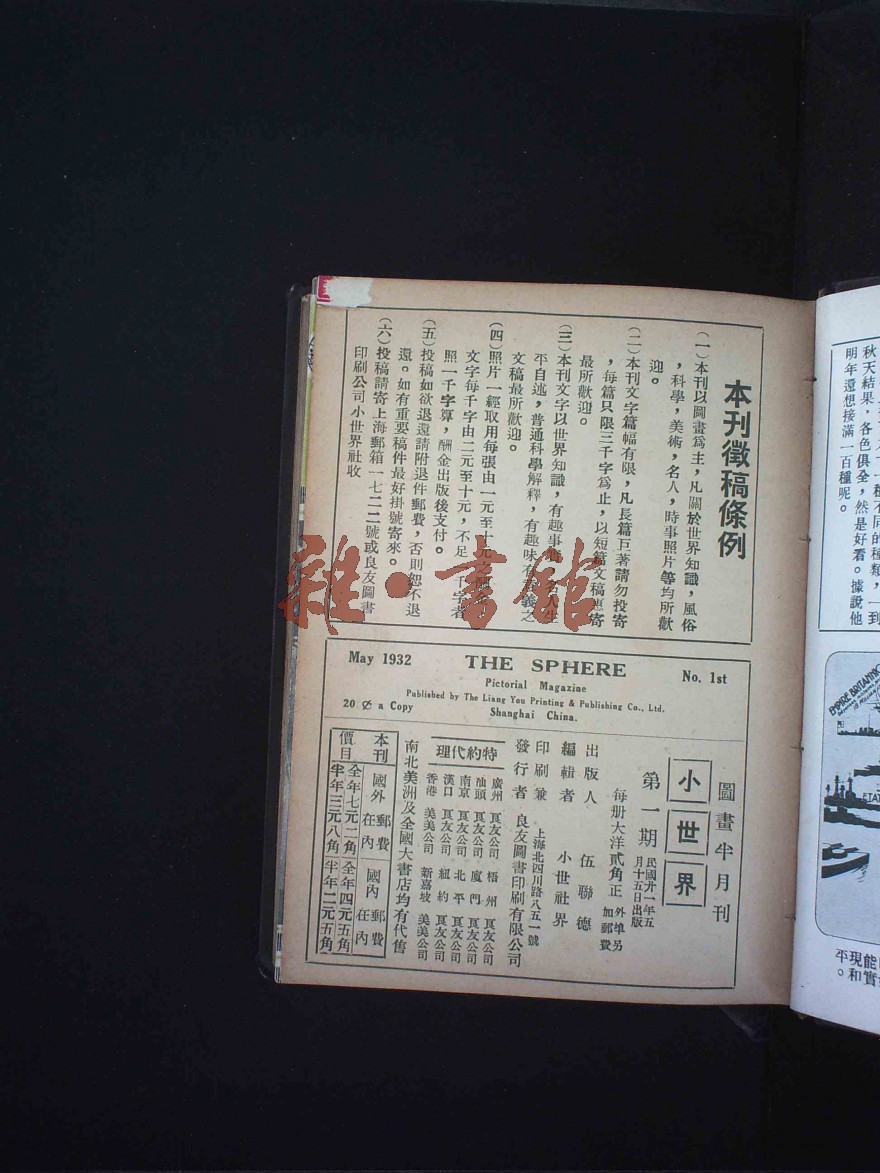 本刊徵稿條例
（一）本刊以圖畫爲主，凡關於世界知識，風俗
，科學，美術，名人，時事照片等均所歡
迎。
（二）本刊文字篇幅有限，凡長篇巨著請勿投寄
，每篇只限三千字爲止，以短篇文稿惠寄
最所歡迎。
（三）本刊文字以世界知識，有趣事 名人生
平自述，普通科學解釋，有趣味有 義之
文稿最所歡迎。
（四）照片一經取用每張由一元至十元之
文字每千字由二元至十元，不足一千字者
照一千字算，酬金出版後支付。
（五）投稿如欲退還請附退件郵費，否則恕不退
還。如有重要稿件最好掛號寄來。
（六）投稿請寄上海郵箱一七二二號或良友圖書
印刷公司小世界社收
雜·書館
May 1932 THE SPHERE No. 1st
Pictorial Magazine
Published by The Liang You Printing & Publishing Co., Ltd.
20 ¢ a Copy Shanghai China.
圖畫半月刊
小世界
第一期 民國廿一年五月十五日出版
每册大洋貳角正 外埠另加郵費
出版人 伍聯德
編輯者 小世界社
印刷兼發行者 上海北四川路八五一號 良友圖書印刷有限公司
特約代理
廣州 良友公司 梧州 良友公司
汕頭 良友公司 廈門 良友公司
南京 良友公司 北平 良友公司
漢口 良友公司 紐約 良友公司
香港 美美公司 新嘉坡 美美公司
南北美洲及全國大書店均有代售
本刊價目
國外郵費在內 全年七元二角 半年三元八角
國內郵費在內 全年四元五角 半年二元五角
秋天結果，各色俱全，然是好看。據說他
明年還想接滿一百種呢。
EMPIRE BRITANNI
現
平。